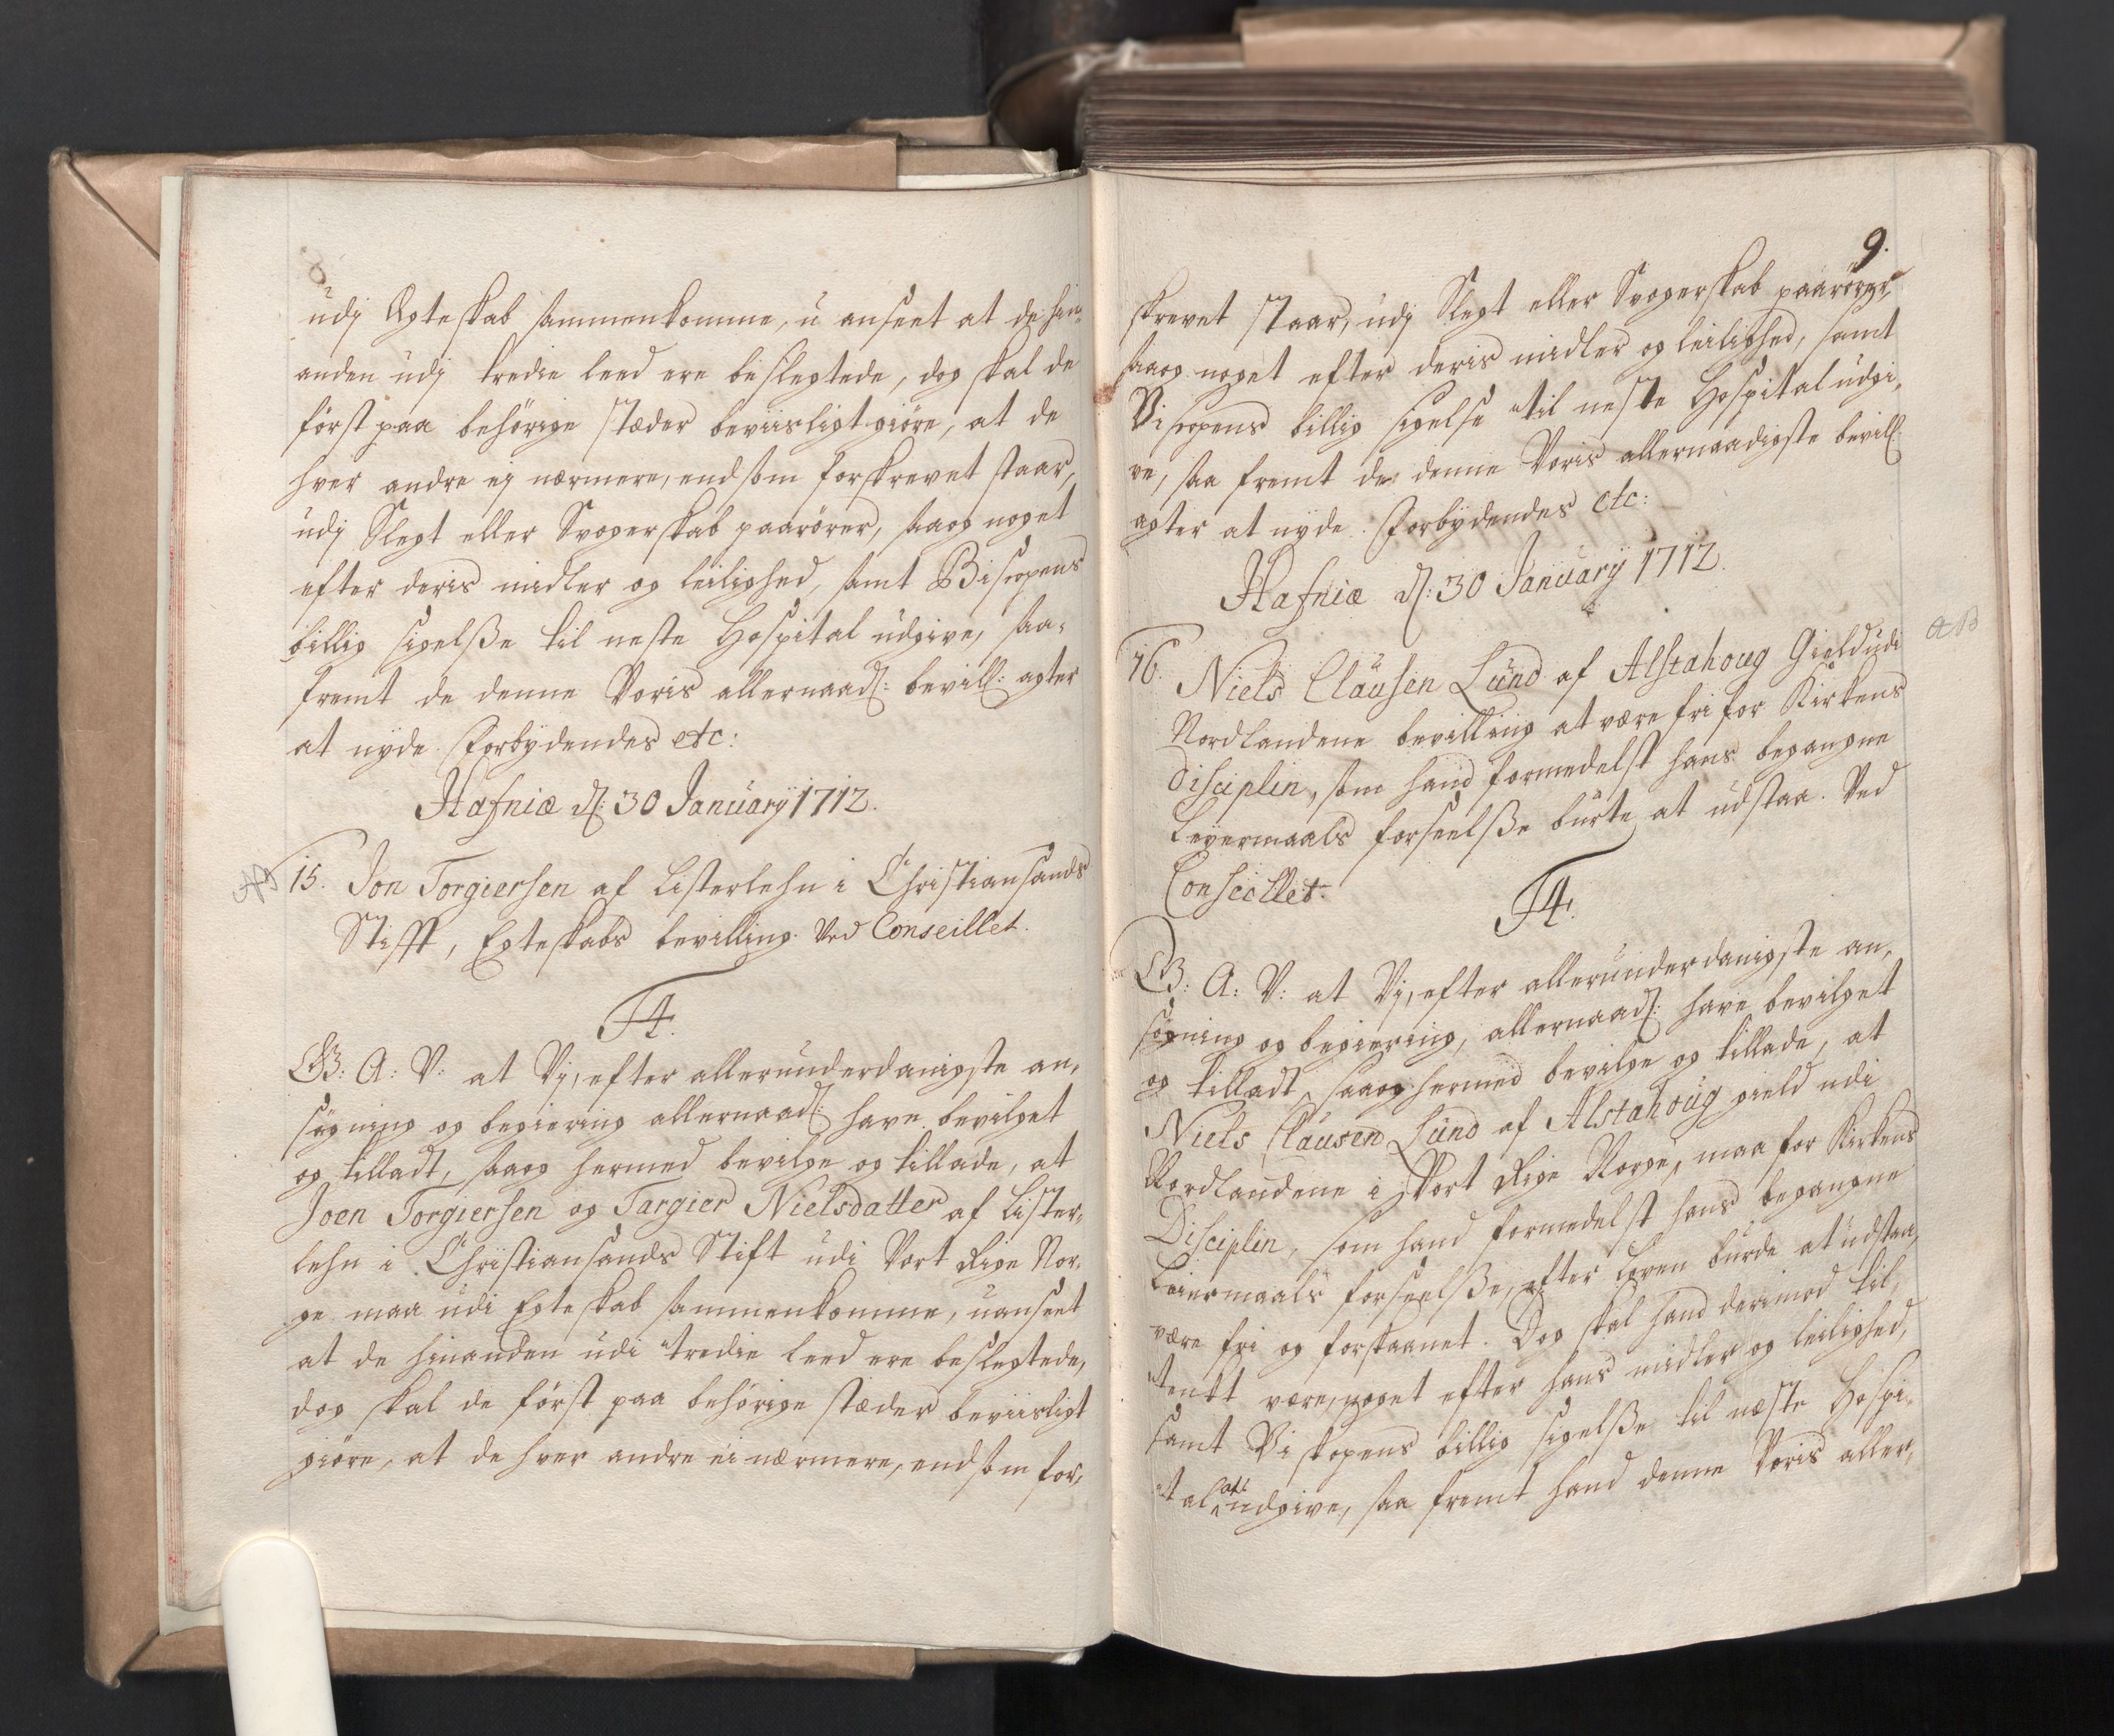 udj Egteskab sammenkomme, u anseet at de hin,
anden udj tredie leed ere beslegtede, dog skal de
först paa behörige stæder beviisligtgiöre, at de
hver andre ej nærmere, end som forskrevet staar,
udj Slegt eller Svogerskab paarörer, saaog noget
efter deris midler og leilighed, samt Biscopens
billig sigelße til neste Hospital udgive, saa,
fremt de denne Voris allernaad: bevill: agter
at nyde. Forbydendes etc:
Hafniæ d: 30 Januarij 1712.
15. Jon Torgiersen af Listerlehn i Christiansands
Stifft, Egteskabs bevilling. Ved Conseillet.
F4.
G: A: V: at Vj, efter allerunderdanigste an,
sögning og begiering allernaad: have bevilget
og tilladt, saaog hermed bevilge og tillade, at
Joen Torgiersen og Targier Nielsdatter af Lister,
lehn i Christiansands Stift udi Vort Rige Nor,
ge maa udi Egteskab sammenkomme, uanseet
at de hinanden udi tredie leed ere beslegtede,
dog skal de först paa behörige stæder beviisligt
giöre, at de hver andre ei nærmere, end som for,
9.
skrevet staar, udj Slegt eller Svogerskab paarörer,
saaog noget efter deris midler og leilighed, samt
Biscopens billig sigelse til neste Hospital udgi,
ve, saa fremt de denne Voris allernaadigste bevill:
agter at nyde. Forbydendes etc:
Hafniæ d: 30 Januarij 1712.
16. Niels Clausen Lund af Alstahoug Gield udi
Nordlandene bevilling at være fri for Kirkens
Disciplin, som hand formedelst hans begangne
Leyermaals forseelße burte at udstaa. Ved
Conseillet.
F4.
G: A: V: at Vj, efter allerunderdanigste an,
sögning og begiering, allernaad: have bevilget
og tilladt, saaog hermed bevilge og tillade, at
Niels Clausen Lund af Alstahoug gield udi
Nordlandene i Vort Rige Norge, maa for Kirkens
Disciplin, som hand formedelst hans begangne
Leiermaals forseelße, efter Loven burde at udstaa,
være fri og forskaanet. Dog skal hand derimod til,
tenkt være, noget efter hans midler og leilighed,
samt Biskopens billig sigelße til næste Hospi,
tal at udgive, saa fremt hand denne Voris aller,